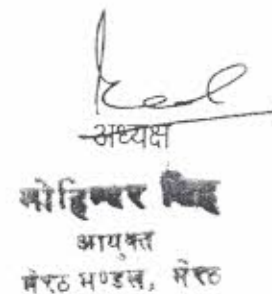 अध्यक्ष
मोहिन्दर सिंह
आयुक्त
मेरठ मण्डल, मेरठ